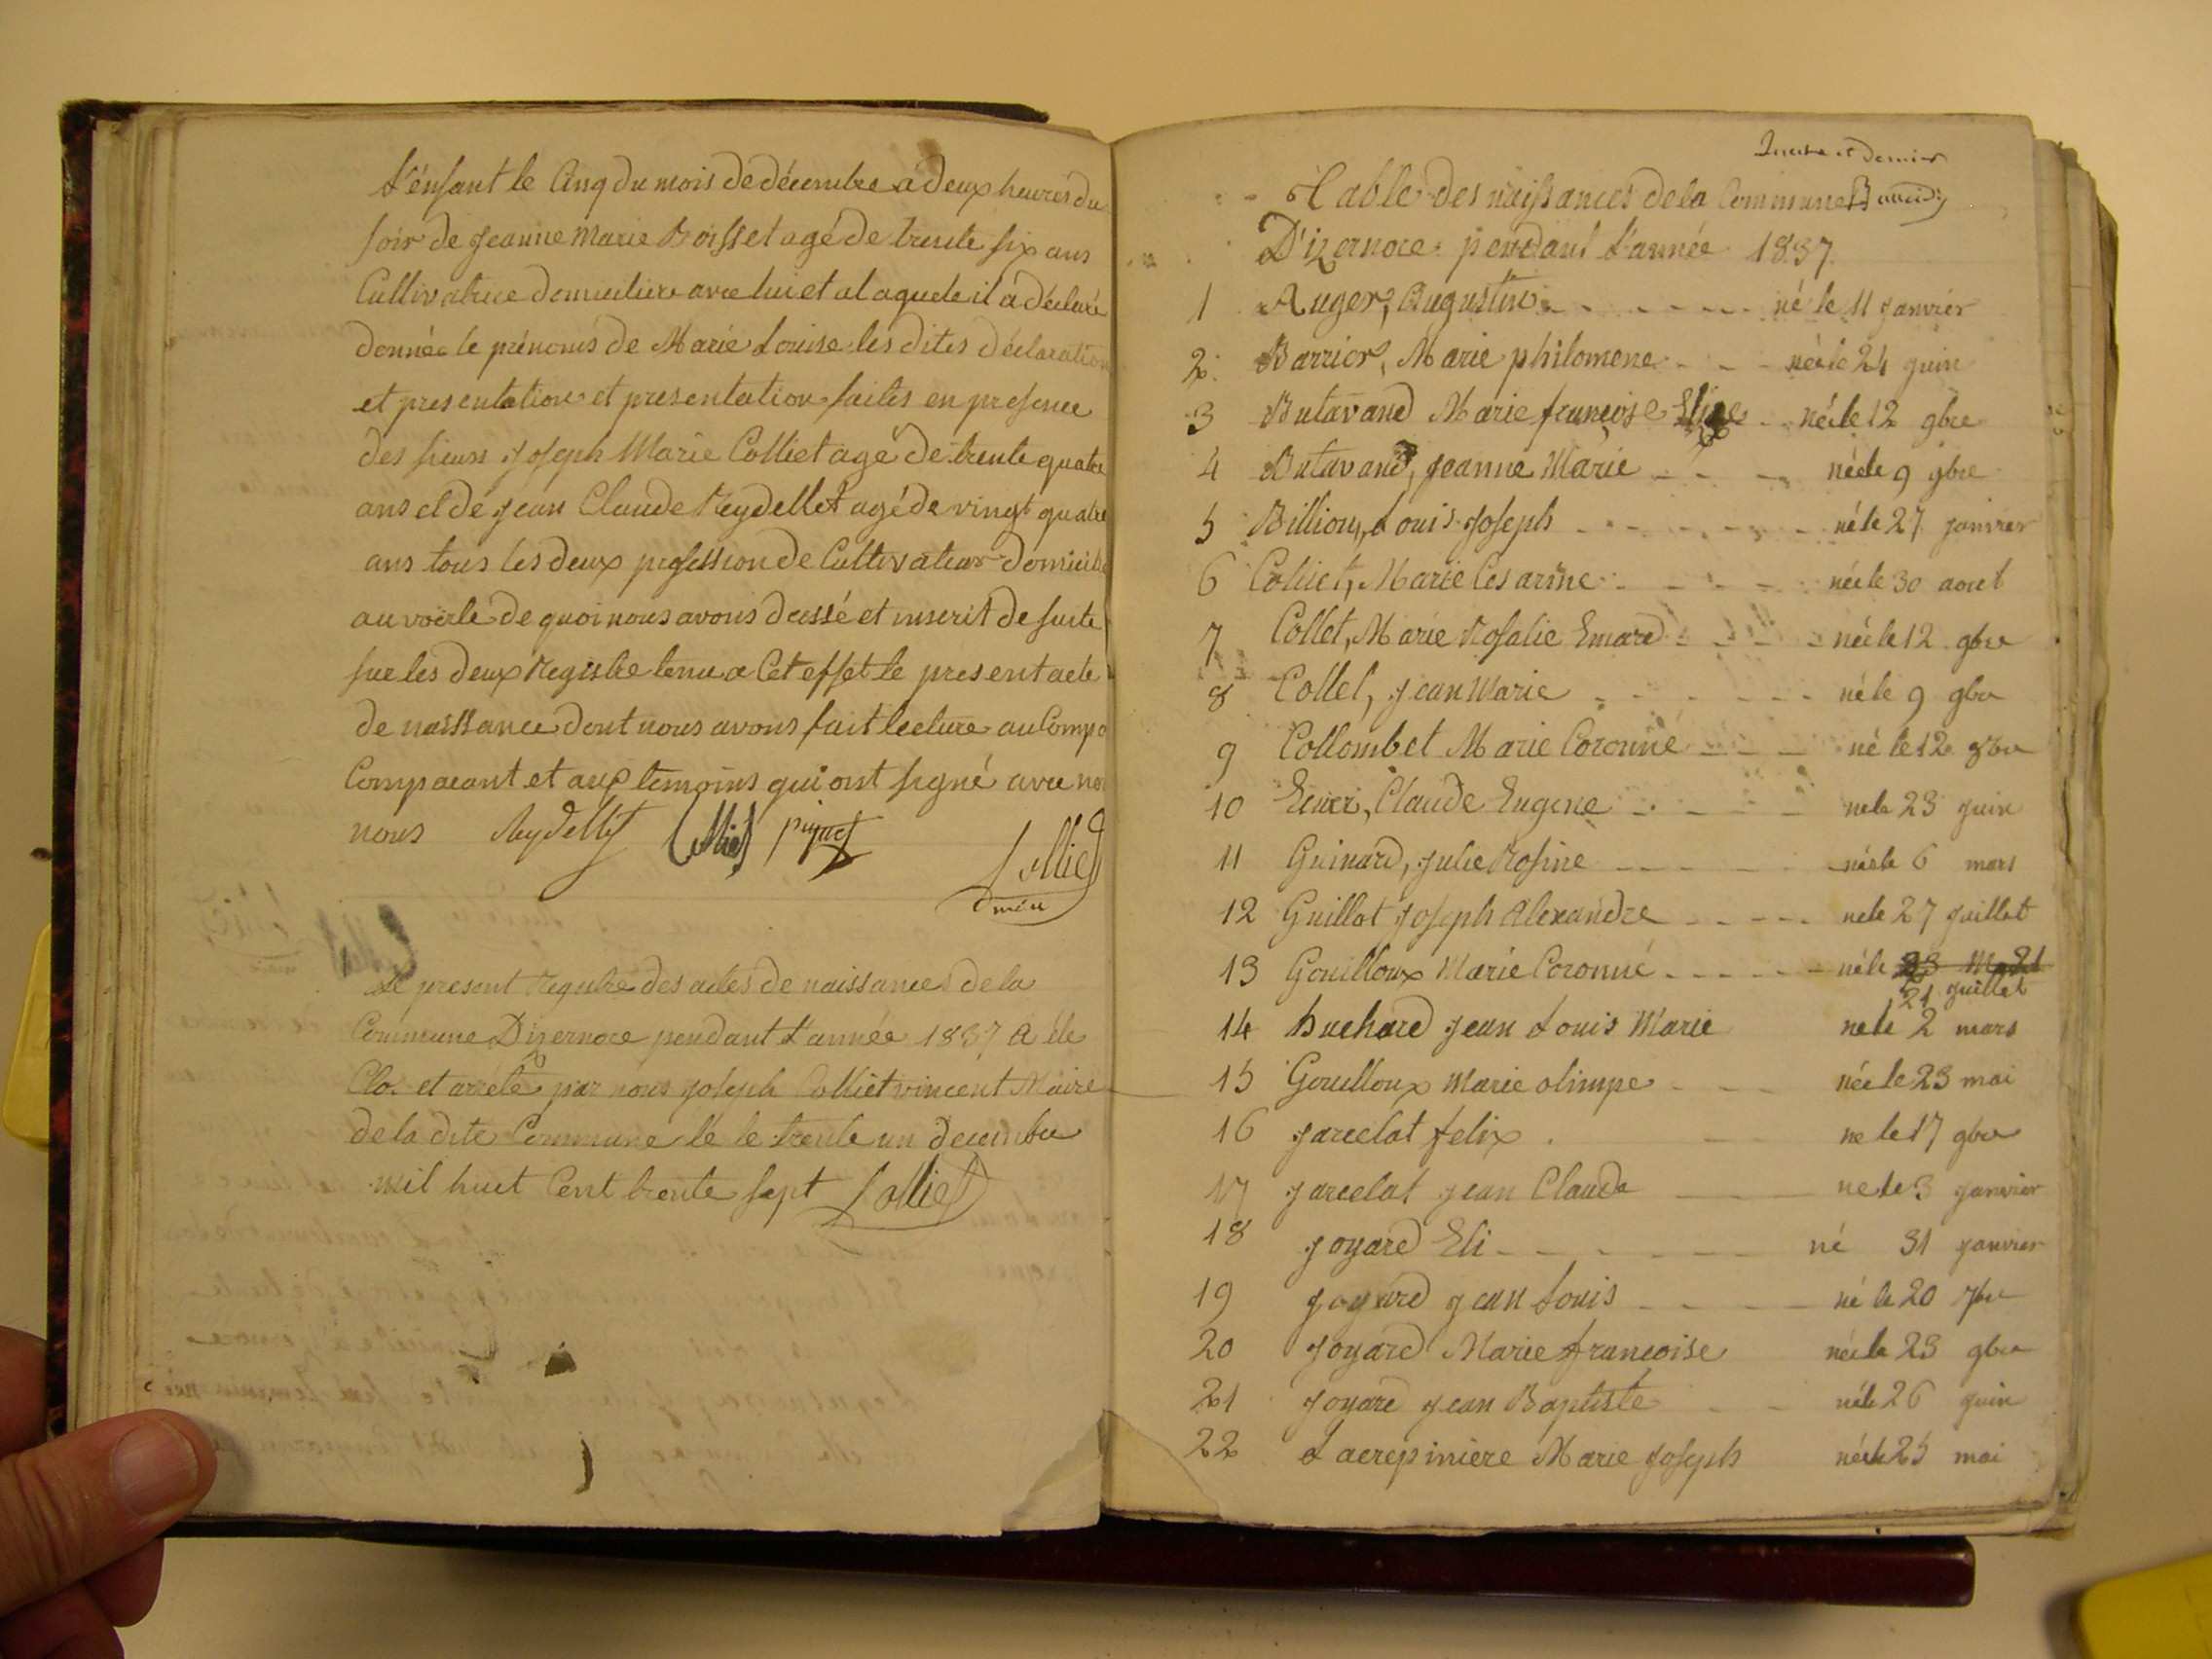 L'énfant le Cinq du mois de décembre a deux heures du
soir de Jeanne Marie Boisset agé de trente six ans
Cultivatrice domiciliere avec lui et a laquele il a déclaré
donnée le prénoms de Marie Louise les dites déclaration
et presentation et presentation faites en presence
des sieurs Joseph Marie Colliet agé de trente quatre
ans et de Jean Claude Reydellet agé de vingt quatre
ans tous les deux profession de Cultivateur domicilié
au voerle de quoi nous avons dressé et inscrit de suite
sur les deux Registre tenu a Cet effet le present acte
de naissance dont nous avons fait lecture au Compa
Comparant et aux temoins qui ont signé avec no
nous Reydellet Colliet piquet
Colliet
maire
Le present Registre des actes de naissances de la
Commune Dizernore pendant l'année 1837 a été
Clo. et arrêté par nous Joseph Colliet vincent Maire
de la dite Commune le le trente un decembre
mil huit Cent trente sept Colliet
et dernier
Table des naissances de la Commune
D'izernore pendant l'année 1837
1 Auger, Augustin né le 11 janvier
2 Barrier, Marie philomene née le 24 juin
3 Butavand Marie françoise née le 12 9bre
4 Butavand, Jeanne Marie née le 9 9bre
5 Billion, Louis Joseph né le 27 janvier
6 Colliet, Marie Cesarine née le 30 aout
7 Collet, Marie Rosalie Emard née le 12 9bre
8 Collet, Jean Marie né le 9 9bre
9 Collombet Marie Coronné né le 12
10 Claude Eugene né le 23 juin
11 Guinard, Julie Rosine née le 6 mars
12 Guillot Joseph Alexandre né le 27 juillet
13 Gouilloux Marie Coronné né le 23
21 juillet
14 huchard Jean Louis Marie né le 2 mars
15 Gouilloux Marie olimpe née le 23 mai
16 Jarcelat felix né le 17 9bre
17 Jarcelat Jean Claude né le 3 janvier
18 Joyard Eli né 31 janvier
19 Joyard Jean Louis né le 20 7bre
20 Joyard Marie françoise née le 23 9bre
21 Joyard Jean Baptiste né le 26 juin
22 Lacrepiniere Marie Joseph née le 25 mai